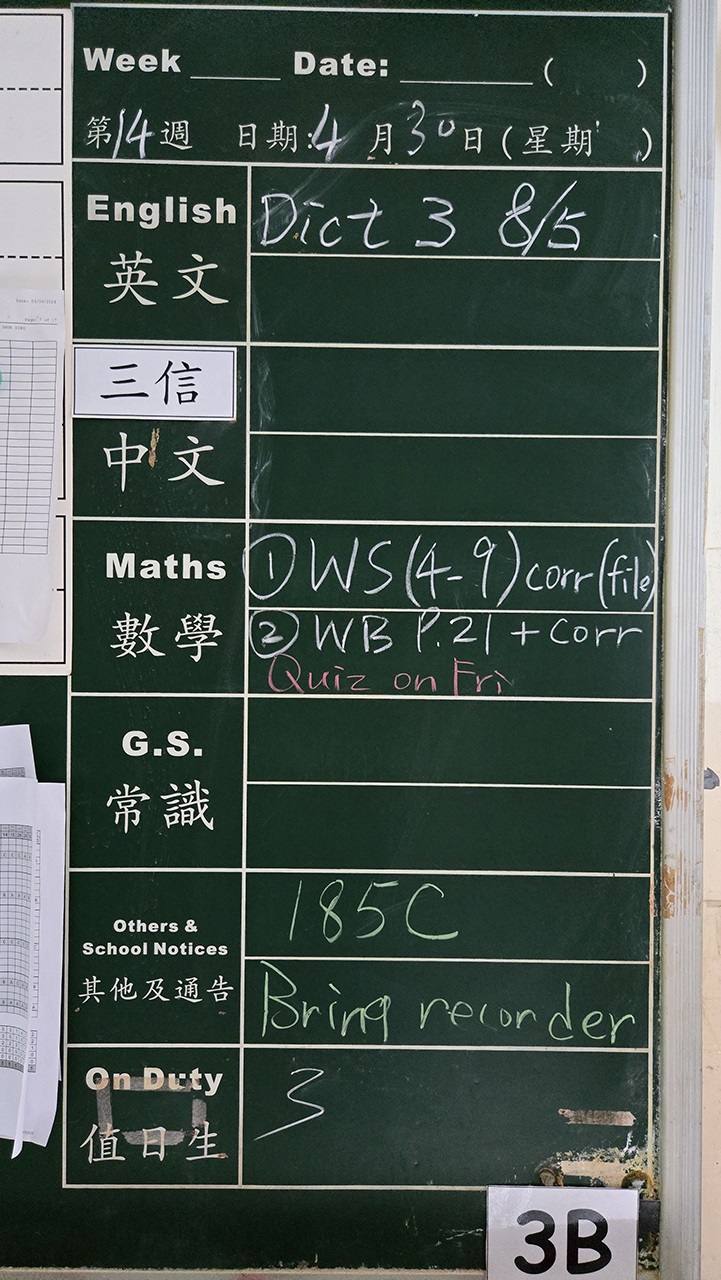 Week ______ Date: _________ ( )
第14週 日期:4月30日(星期 )
English Dict 3 8/5
英文
三信
中文
Maths ① WS (4-9) corr (file)
數學 ② WB P.21 + corr
Quiz on Fri
G.S.
常識
Others & 185C
School Notices
其他及通告 Bring recorder
On Duty 3
值日生
3B